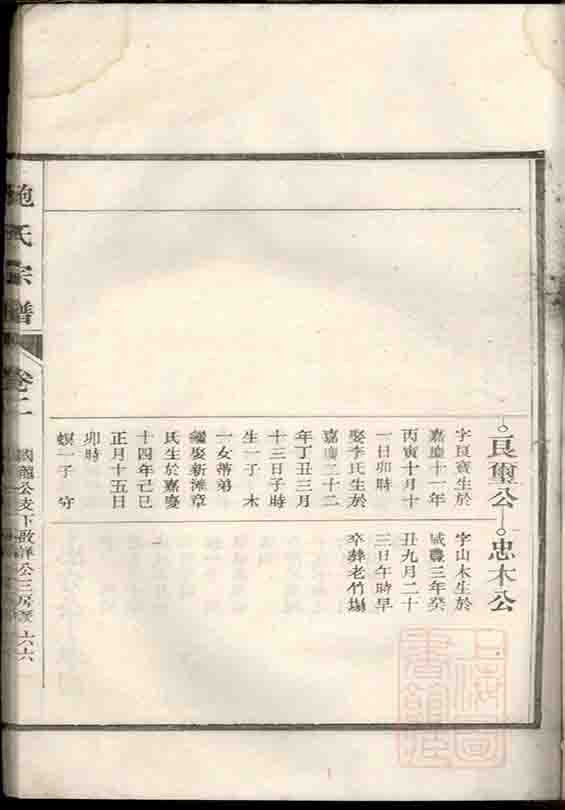 良璽公
字良寶生於
嘉慶十一年
丙寅十月十
一日卯時
娶李氏生於
嘉慶二十二
年丁丑三月
十三日子時
生一子 木
一女蒂弟
繼娶新滩章
氏生於嘉慶
十四年己巳
正月十五日
卯時
螟一子 守
忠木公
字山木生於
咸豐三年癸
丑九月二十
三日午時早
卒葬老竹塌
鮑氏宗譜
卷二
國龍公支下啟祥公三房 六六
上海圖書館藏